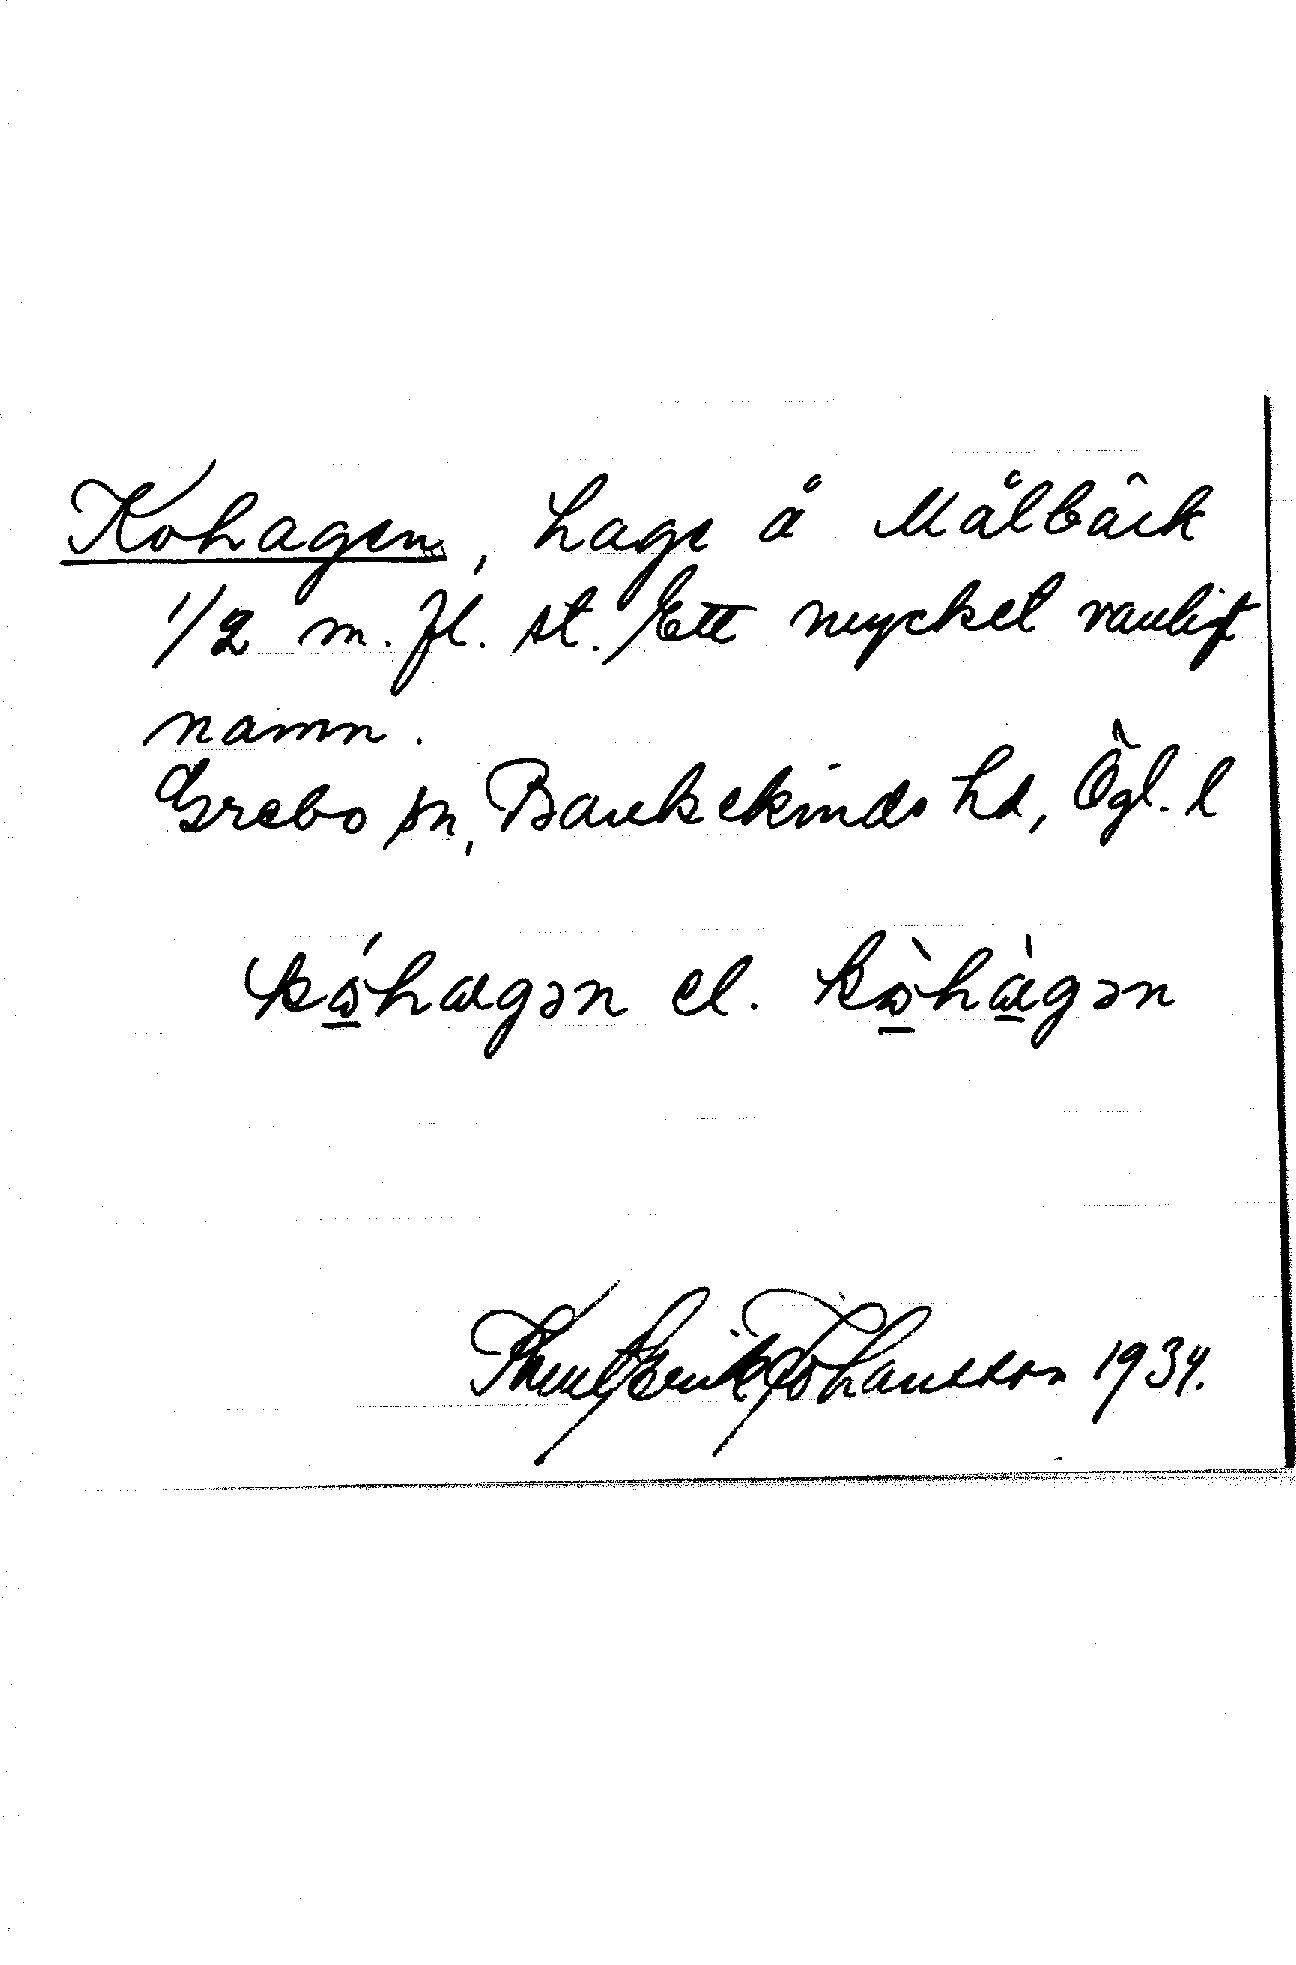 Kohagen, hage å Målbäck
1/2 m. fl. st. Ett mycket vanligt
namn.
Grebo sn, Bankekinds hd, Ögl. l
kóhagən el. kòhàgən
Knut Erik Johansson 1934.